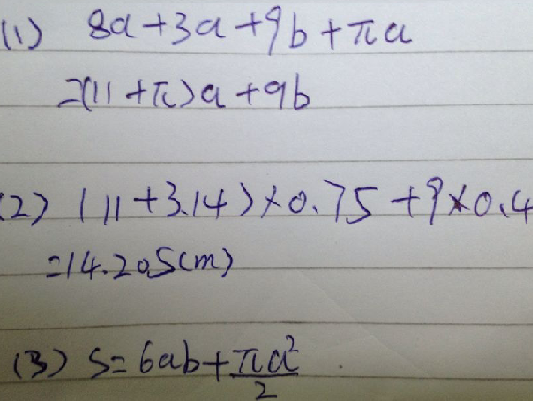 (1) 8a+3a+9b+πa
=(11+π)a+9b
(2) (11+3.14)×0.75+9×0.4
=14.205(m)
(3) S=6ab+πa²/2